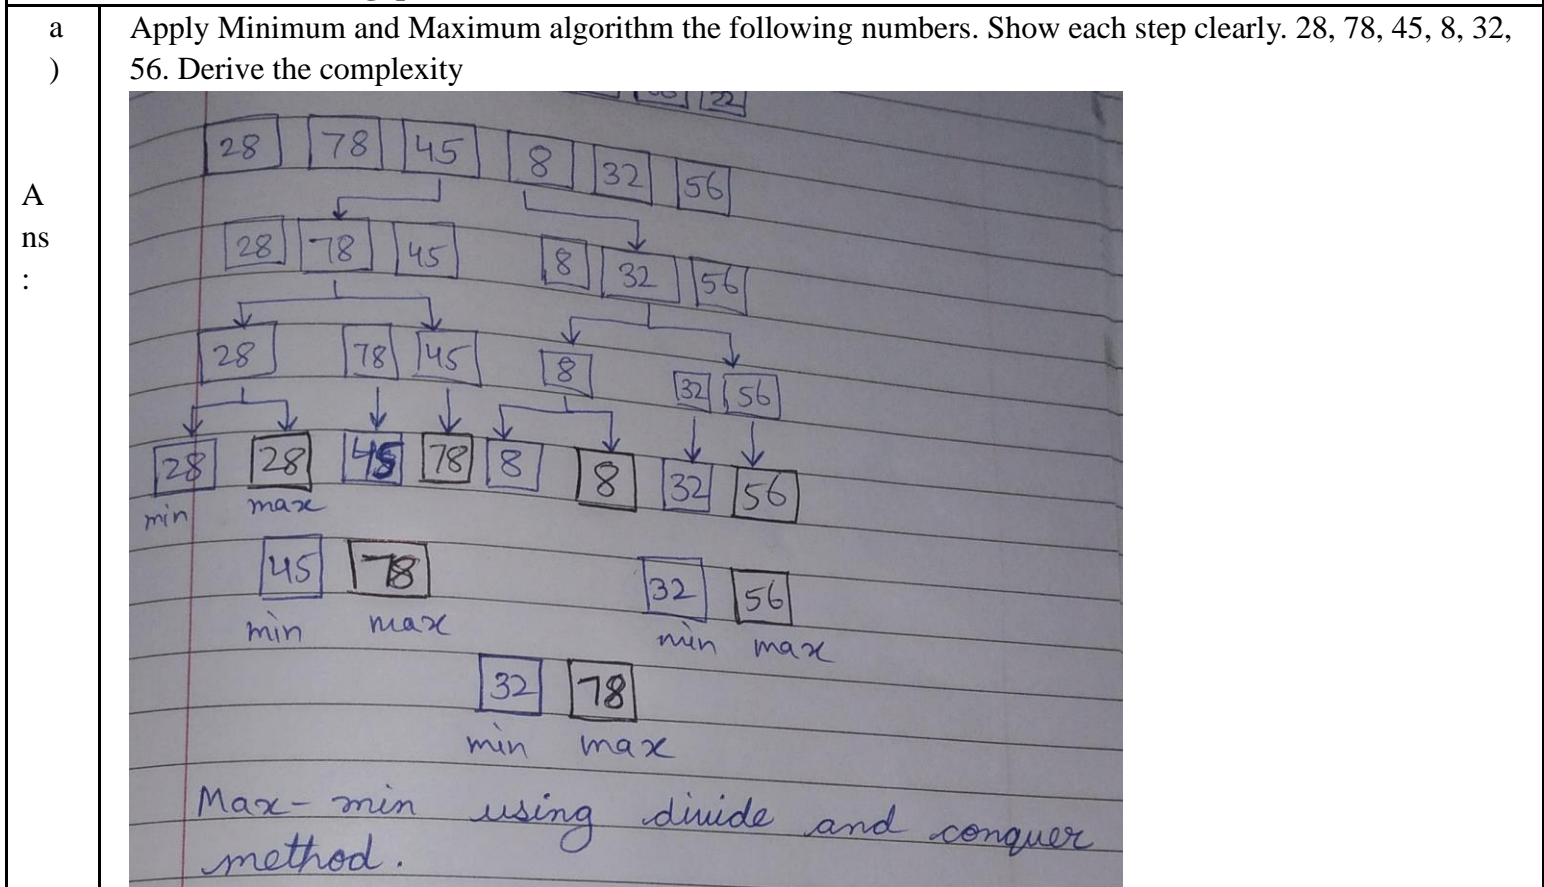 a
)
Apply Minimum and Maximum algorithm the following numbers. Show each step clearly. 28, 78, 45, 8, 32,
56. Derive the complexity
A
ns
:
22
28 78 45 8 32 56
28 78 45 8 32 56
28 78 45 8 32 56
28 28 45 78 8 8 32 56
min max
45 78 32 56
min max min max
32 78
min max
Max-min using divide and conquer
method.